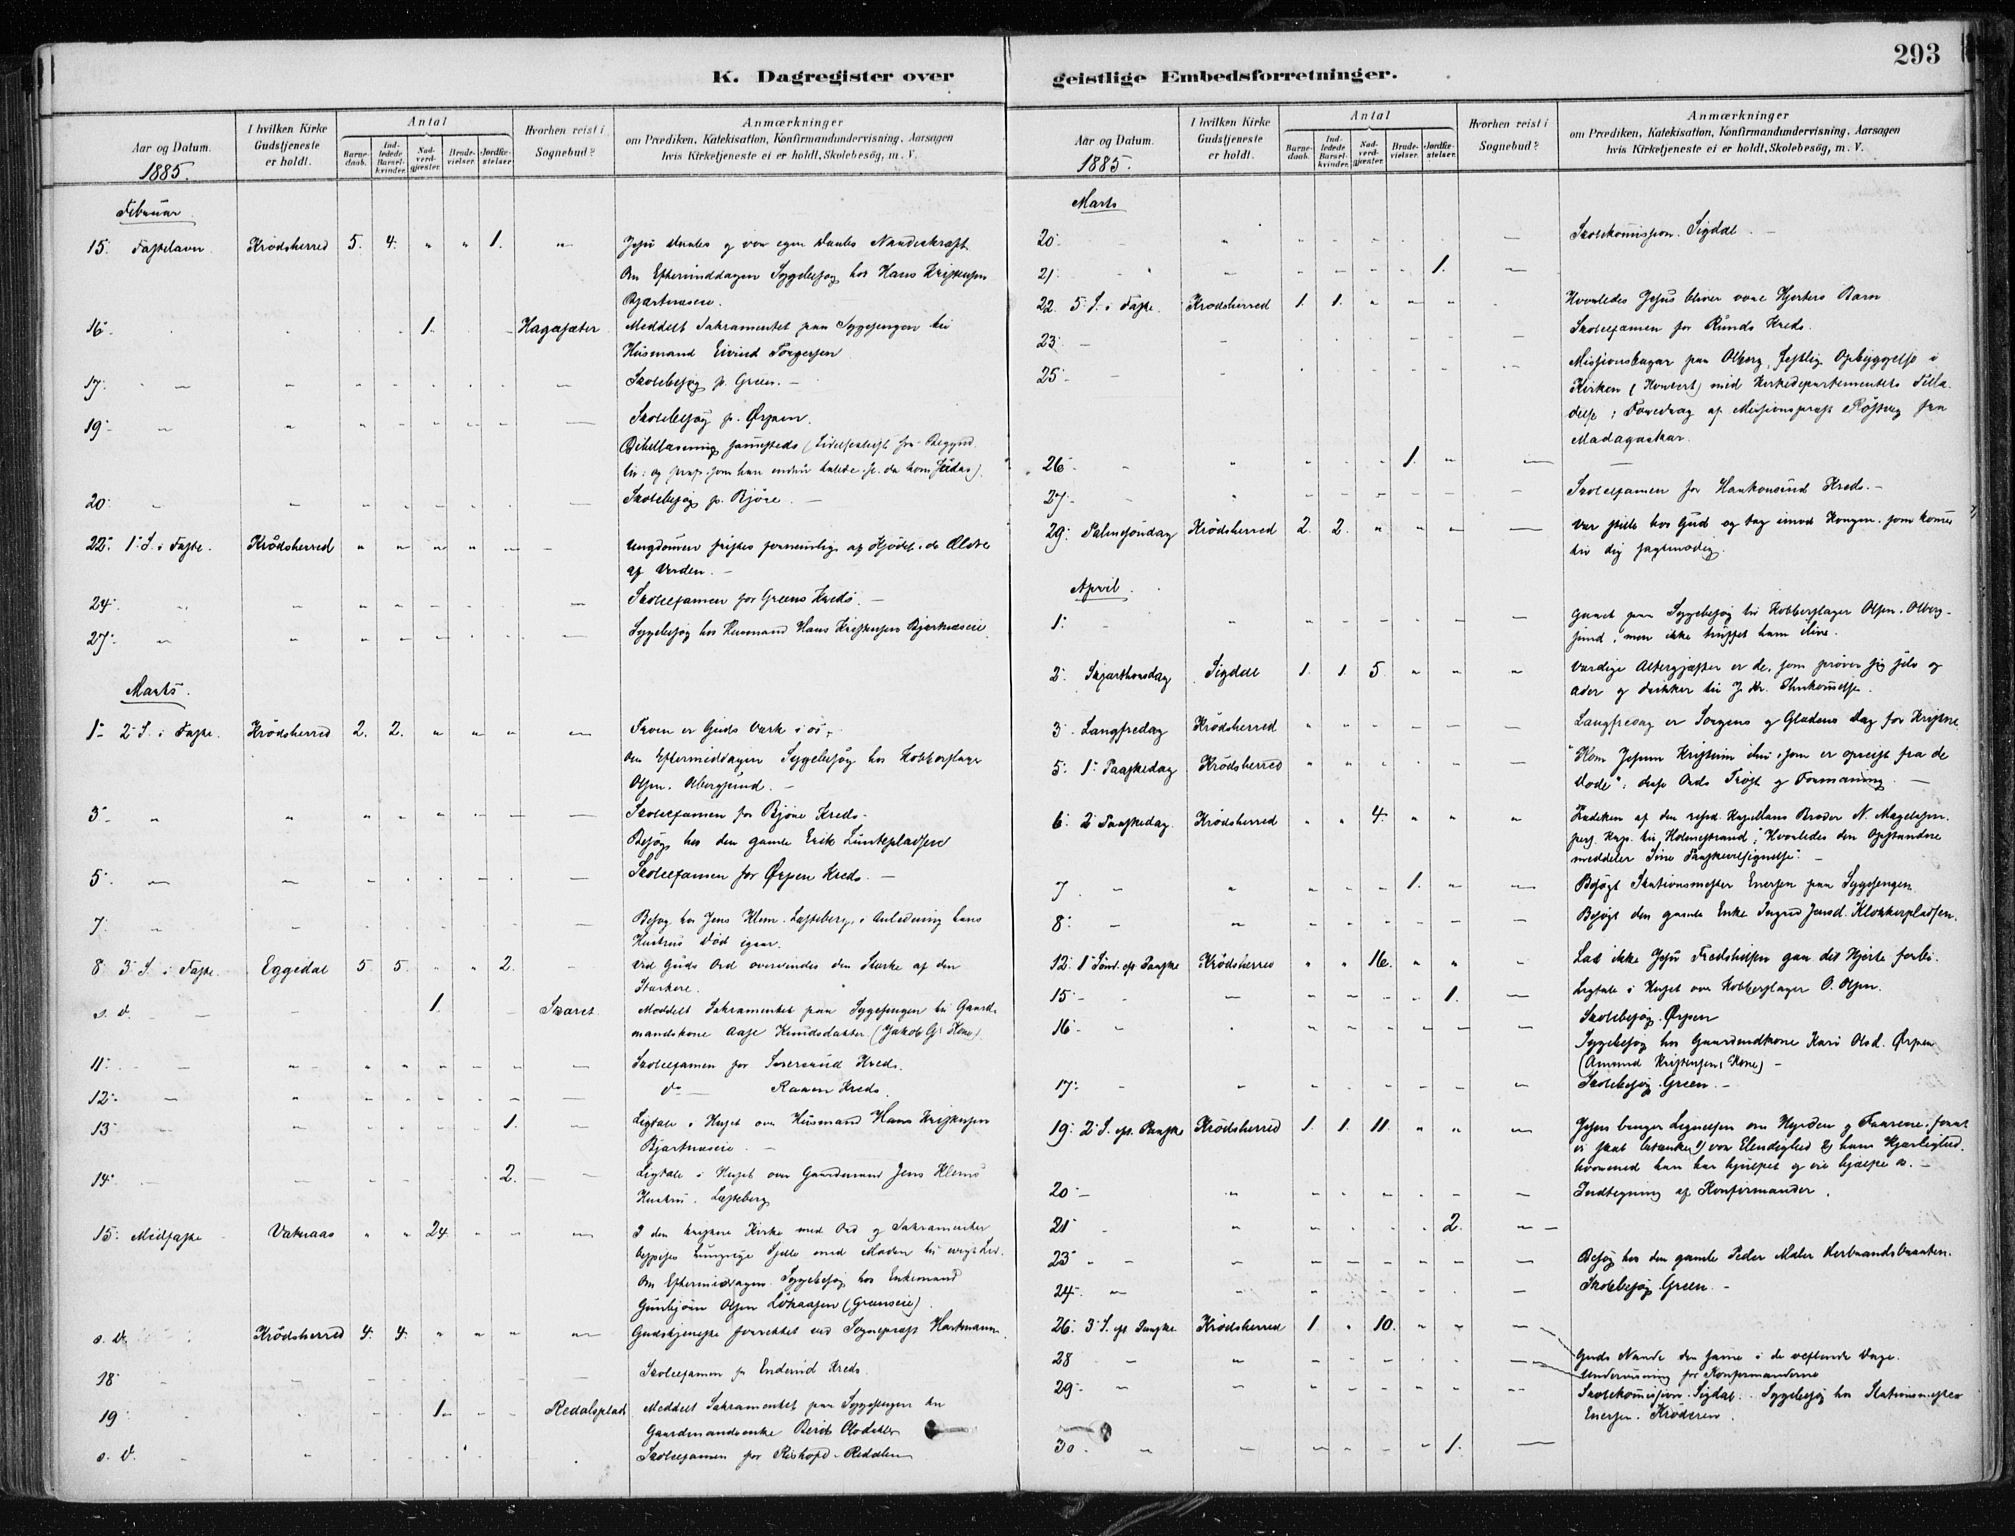 293
K. Dagregister over
Aar og Datum.
1885.
I hvilken Kirke
Gudstjeneste
er holdt.
Antal
Barne-
daab.
Ind-
ledede
Barsel-
kvinder.
Nad-
verd-
gjester.
Brude-
vielser.
Jordfæ-
stelser.
Hvorhen reist i
Sognebud?
Anmærkninger
om Prædiken, Katekisation, Konfirmandundervisning, Aarsagen
hvis Kirketjeneste ei er holdt, Skolebesøg, m. V.
Februar
15. Fastelavn Krødsherred 5. 4. " " 1. " Jesu Daabs og vor egen Daabs Naadeskraft
Om Eftermiddagen Sygebesøg hos Hans Kristensen
Bjærtnæseie.
16 1. Hagasæter Meddelt Sakramentet paa Sygesengen til
Husmand Eivind Torgersen
17. Skolebesøg p. Green. —
19 Skolebesøg p. Ørpen.
Bibellæsning sammesteds
og som han endnu talede, se, da kom Judas).
20 Skolebesøg p. Bjøre. —
22. 1. S. i Faste. Krødsherred " " " " " Ungdommen fristes fornemlig af Kjødet, de Ældre
af Verden. —
24. Skoleexamen for Greens Kreds. —
27. Sygebesøg hos Husmand Hans Kristensen Bjærtnæseie.
Marts.
1. 2. S. i Faste. Krødsherred 2. 2. " " " Troen er Guds Værk i os.
Om Eftermiddagen Sygebesøg hos Kobberslager
Olsen, Olbergsund. —
3. Skoleexamen for Bjøre Kreds.
Besøg hos den gamle Erik Lunkepladsen
5. Skoleexamen for Ørpen Kreds. —
7. Besøg hos Jens Klem. Læsteberg, i Anledning hans
Hustrus Død igaar.
8. 3. S. i Faste Eggedal 5. 5. " " 2. Ved Guds Ord overvindes den Stærke af den
Stærkere.
s. D. 1. Skaret Meddelt Sakramentet paa Sygesengen til Gaard-
mandskone Aase Knudsdatter (Jakob G. Kone).
11. Skoleexamen for Kreds.
12. do — Raaen Kreds.
13 1. Ligtale i Huset over Husmand Hans Kristensen
Bjærtnæseie. —
14. 2. Ligtale i Huset over Gaardmand Jens Klems
Hustru. Læsteberg
15. Midfaste Vatnaas " " 24. " " I den kristne Kirke med Ord og Sakramenter
bespises hungrige Sjæle med Maden til evigt Liv.
Om Eftermiddagen Sygebesøg hos Enkemand
Gunbjørn Olsen Løkaasen (Grænseie).
s. D. Krødsherred 4. 4. " " " Gudstjeneste forrettet ved Sogneprest Hartmann.
18. Skoleexamen p. Enderud Kreds.
19. 1. Redalsplads Meddelt Sakramentet paa Sygesengen til
Gaardmandsenke Berit
s. D. Skoleexamen for Redalen
geistlige Embedsforretninger.
Aar og Datum.
1885.
I hvilken Kirke
Gudstjeneste
er holdt.
Antal
Barne-
daab.
Ind-
ledede
Barsel-
kvinder.
Nad-
verd-
gjester.
Brude-
vielser.
Jordfæ-
stelser.
Hvorhen reist i
Sognebud?
Anmærkninger
om Prædiken, Katekisation, Konfirmandundervisning, Aarsagen
hvis Kirketjeneste ei er holdt, Skolebesøg, m. V.
Marts
20. Skolekomission. Sigdal. —
21. 1.
22. 5. S. i Faste. Krødsherred 1. 1. " " " Hvorledes Jesus bliver vore Hjerters Barn
23. Skoleexamen for Runds Kreds.
25. Missionsbazar paa Olberg, festlig Opbyggelse i
Kirken (Koncert) med Kirkedepartementets Tilla-
delse; Foredrag af Missionsprest Røstvig fra
Madagaskar.
26. 1.
27. Skoleexamen for Haukonsund Kreds. —
29. Palmesøndag Krødsherred 2. 2. " " " Vær stille hos Gud og tag imod Kongen, som kommer
til dig sagtmodig.
April.
1. Gaaet paa Sygebesøg til Kobberslager Olsen. Olberg-
sund, men ikke truffet ham ilive.
2. Skjærthorsdag Sigdal 1. 1. 5. " " Værdige Altergjæster er de, som prøver sig selv og
æder og drikker til J. Kr. Ihukommelse.
3. Langfredag Krødsherred " " " " " Langfredag er Sorgens og Glædens Dag for Kristne.
5. 1. Paaskedag Krødsherred " " " " " "Kom Jesum Kristum ihu, som er opreist fra de
Døde"; disse Ords Trøst og Formaning. —
6. 2. Paaskedag Krødsherred " " 4. " " Prædiken af den resid. Kapellans Broder N. Magelssen.
pers. Kap. til Holmestrand; "Hvorledes den Opstandne
meddeler Sine Paaskevelsignelse". —
7. 1. Besøgt Stationsmester Enersen paa Sygesengen.
8. Besøgt den gamle Enke Ingrid Jensd. Klokkerpladsen.
12. 1. Sønd. eft. Paaske Krødsherred " " 16. " " Lad ikke Jesu Fredshilsen gaa dit Hjerte forbi.
15. 1. Ligtale i Huset over Kobberslager O. Olsen.
16. Skolebesøg. Ørpen
Sygebesøg hos Gaardmdkone Kari Olsd. Ørpen
(Amund Kristensens Kone) —
17. Skolebesøg. Green. —
19. 2. S. eft. Paaske Krødsherred 1. 1. 11. " " Jesus bruger Lignelsen om Hyrden og Faarene, forat
vi skal betænke 1) vor Elendighed 2) hans Kjærlighed,
hvormed han har hjulpet og vil hjælpe os. —
20. Indtegning af Konfirmander.
21. 2.
23. Besøg hos den gamle Peder Maler Herbrandsbraaten.
24. Skolebesøg. Green. —
26. 3. S. eft. Paaske Krødsherred 1. " 10. " "
28. Guds Naade den samme i de vexlende Dage.
Undervisning for Konfirmanderne
29. Skolekomission. Sigdal. Sygebesøg hos Stationsmester
Enersen. Krøderen.
30. 1.